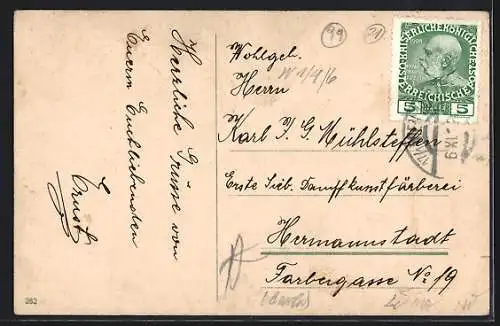 Herzliche Grüsse von
Euerm Euchliebenden
Ernst
Wohlgeb.
Herrn
Karl F. G. Mühlsteffen
Erste Sieb. Dampfkunstfärberei
Hermannstadt
Farbergasse No 19
99
21
KAISERLICHE KÖNIGLICHE
ÖSTERREICHISCHE
5 HELLER 5
262